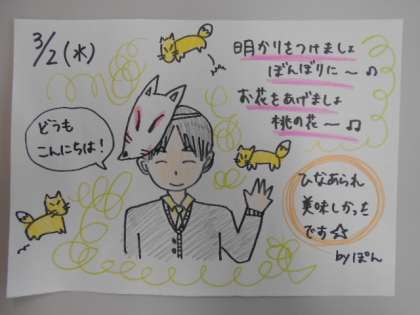 3/2(水)
明かりをつけましょ
ぼんぼりに〜♫
お花をあげましょ
桃の花〜♫
どうも
こんにちは!
ひなあられ
美味しかった
です☆
byぽん